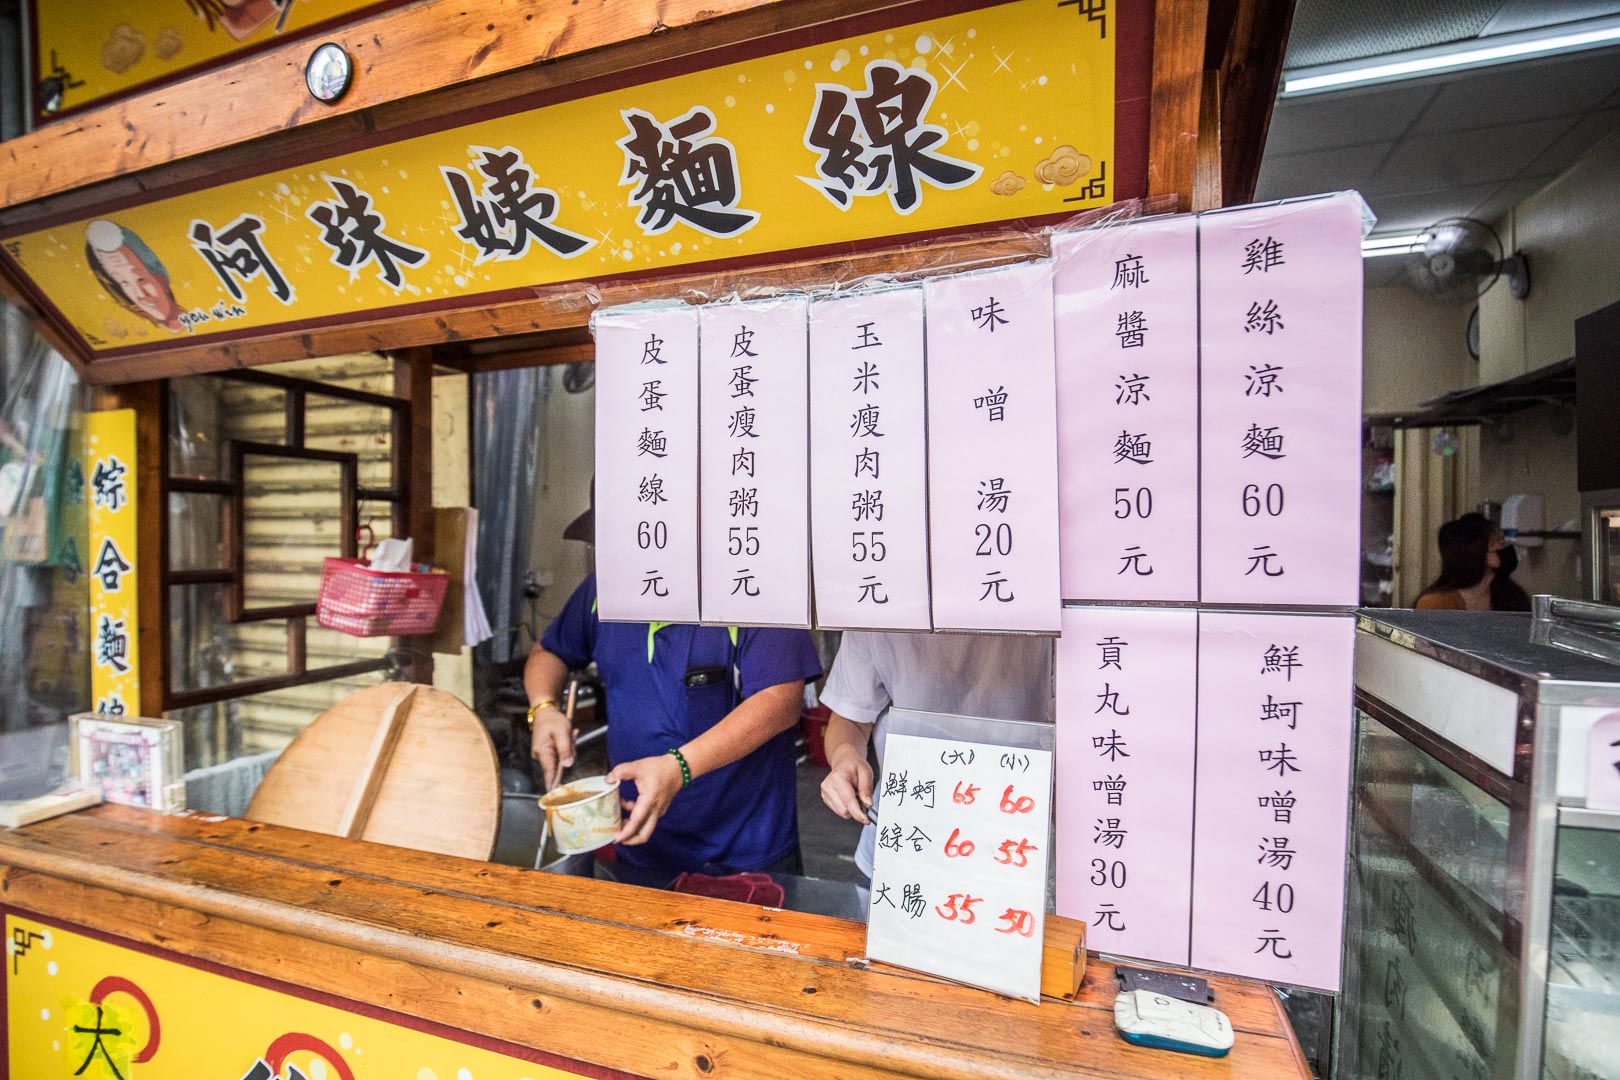 阿珠姨麵線
you win
綜合麵線
皮蛋麵線60元
皮蛋瘦肉粥55元
玉米瘦肉粥55元
味噌湯20元
麻醬涼麵50元
雞絲涼麵60元
貢丸味噌湯30元
鮮蚵味噌湯40元
(大) (小)
鮮蚵 65 60
綜合 60 55
大腸 55 50
大